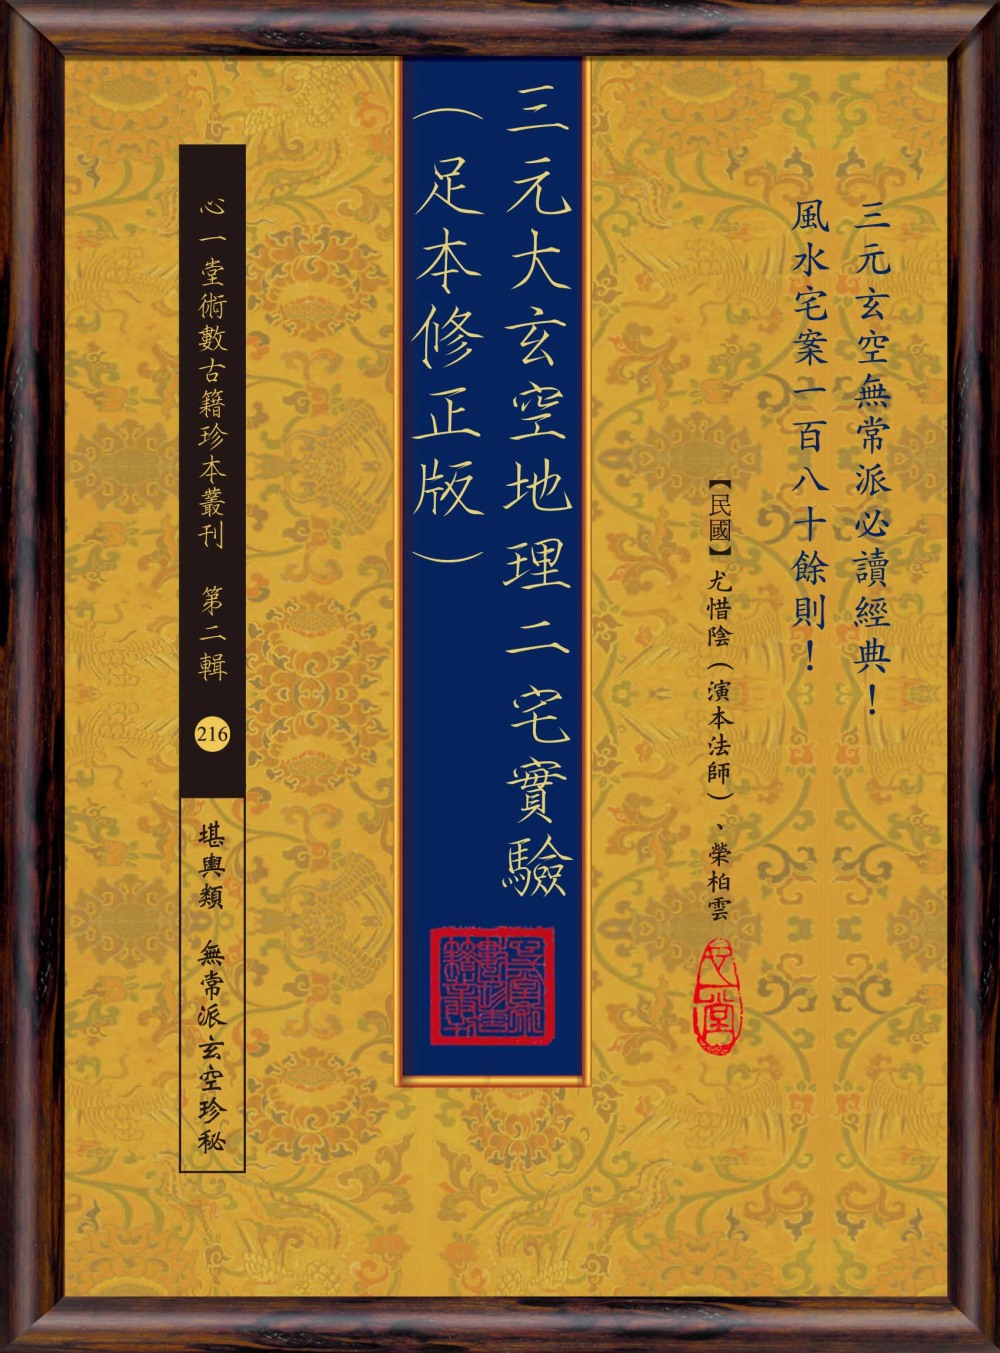 三元玄空無常派必讀經典！
風水宅案一百八十餘則！
【民國】尤惜陰（演本法師）、榮柏雲
心一堂
三元大玄空地理二宅實驗
（足本修正版）
心一堂術數古籍珍本叢刊 第二輯 216
堪輿類 無常派玄空珍秘